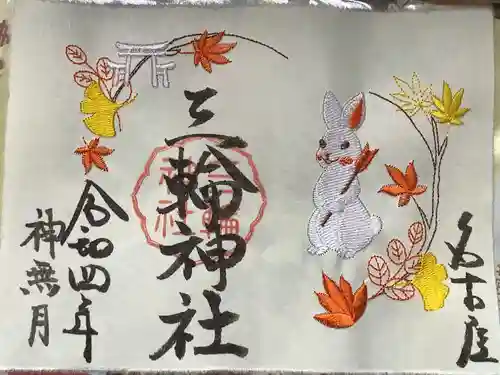 名古屋
三輪神社
令和四年
神無月